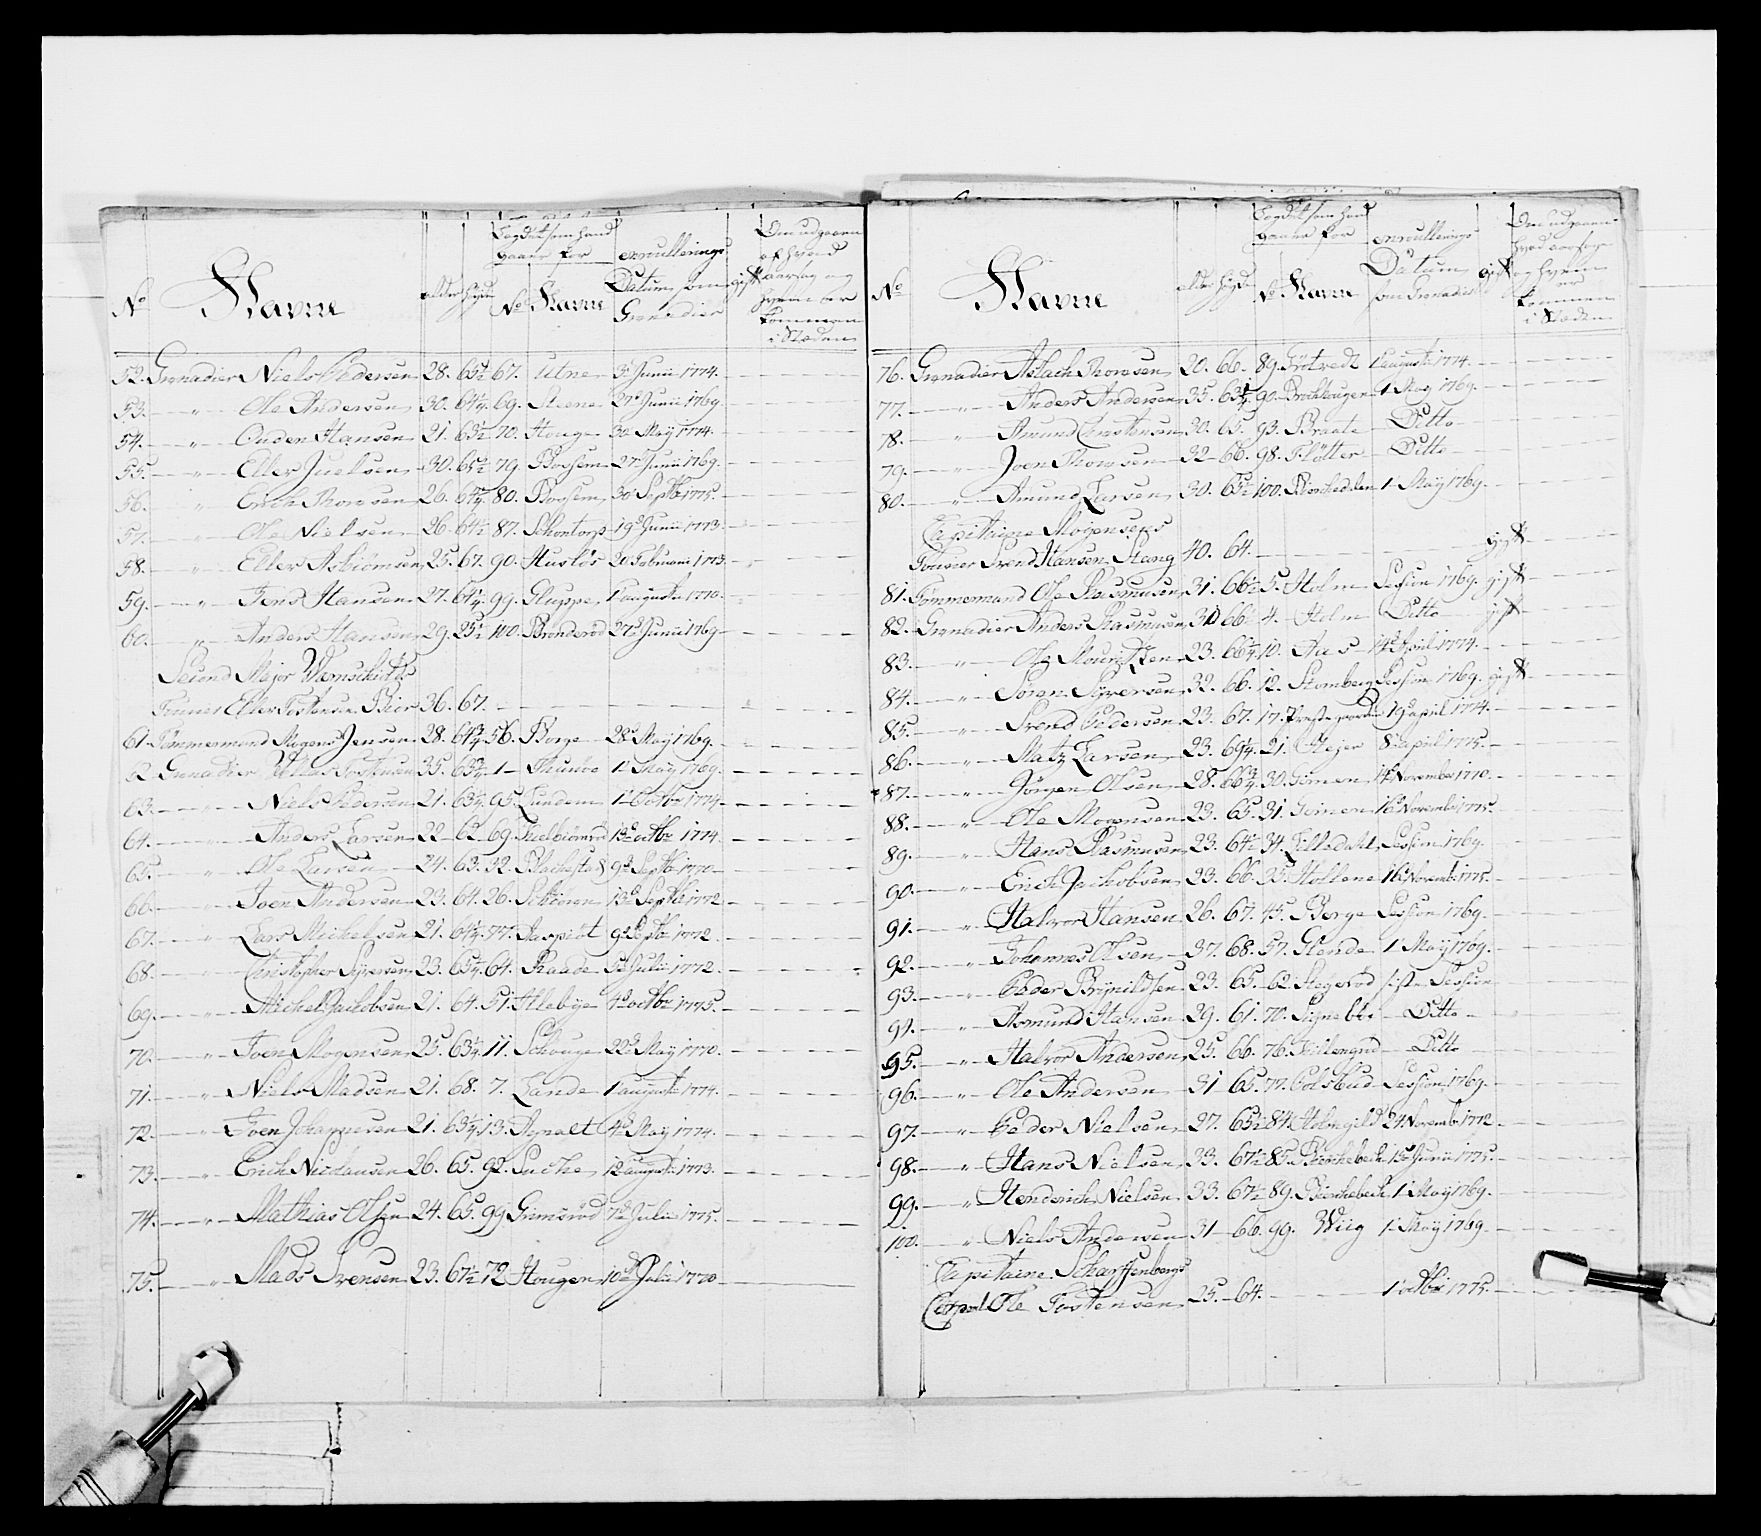 No
Navne
alder
Høyde
Lægdet som hand
gaaer for
No
Navne
enroullerings
Datum som
Grenadier
gift
Om udgaaen
af hvad
aarsag og
hvem er
kommen
i Stæden
52. Grenadier Niels Pedersen 28. 65½ 67. Utne 5te Junii 1774.
53. " Ole Andersen 30. 64¼ 69. Steene 27de Junii 1769.
54. " Ouden Hansen 21. 63½ 70. Houge 30. Maÿ 1774.
55. " Eller Juelsen 30. 65½ 79. Bossem 27de Junii 1769.
56. " Erich Thorsen 26. 64¼ 80. Bossem 30te Septbr 1775.
57. " Ole Nielsen 26. 64½ 87. Schontorp 19de Junii 1773.
58. " Eller Asbiörnsen 25. 67. 90. Huslös 20. Februarii 1773.
59. " Jens Hansen 27. 64¼ 99. Gluppe 1te augustii 1770.
60. " Anders Hansen 29. 25½ 100. Brönderöd 27de Junii 1769
Second Major Wernschiolds
Fourier Eller Tostensen Bier 36. 67.
61. Tömmermand Mogens Jensen 28. 64¾ 56. Borge 28de Maÿ 1769.
62 Grenadier Tostensen 35. 63¾ 1 Thunöe 1te Maÿ 1769.
63. " Niels Pedersen 21. 63¼ 95. Lundem 1te octbr 1774.
64. " Anders Larsen 22 62 69. Kielbiörnröd 13de octbr 1774.
65. " Ole Larsen 24. 63. 32. Blachestad 9de Septbr 1770
66. " Joen Andersen 23. 64. 26. Sebören 13de Septbr 1772
67. " Lars Michelsen 21. 64¼ 77. Aaspiöt 9de Septbr 1772.
68. " Christopher Syversen 23. 65¼ 64. Raade 5te Julii 1772.
69. " Michel Jacobsen 21. 64. 51. Allebÿe 4de octbr 1775.
70. " Joen Mogensen 25. 63¼ 11. Schouge 22de Maÿ 1770.
71. " Niels Madsen 21. 68. 7. Lande 1te augustii 1774.
72. " Joen Johannesen 21. 63¼ 13. Agnalt 4de Maÿ 1774.
73. " Erich Nicolausen 26. 65. 92. Suche 12te augustii 1773.
74. " Mathias Olsen 24. 65. 99 Grimsröd 7de Julii 1775.
75. " Mads Svensen 23. 67½ 72 Hougen 10de Julii 1770
No
Navne
alder
Høyde
Lægdet som hand
gaaer for
No
Navne
enroullerings
Datum
som Grenadier
gift
Om udgaaen
hvad aarsag
og hvem
er
kommen
i Stæden
76. Grenadier Aslach Thoresen 20. 66. 89. 1te augustii 1774.
77. " Anders Andersen 35. 63¼ 90. Brochhougen 1te May 1769.
78. " Amund Christensen 30. 65. 93. Braate Ditto
79. " Joen Thoresen 32 66. 98. Flötter Ditto
80. " Amund Larsen 30. 65½ 100. Biörkedalen 1te Maÿ 1769.
Capitaine Mogensens
Fourier Svend Hansen Stang 40. 64. gift
81. Tömmermand Ole Rasmusen 31. 66½ 5. Holm Session 1769. gift
82. Grenadier Anders Rasmusen 31 66½ 4. Holm Ditto gift
83. " Ole Mouritzen 23. 66¼ 10. Aas 14de April 1774.
84. " Sören Syversen 32. 66. 12. Stomberg Session 1769. gift
85. " Svend Pedersen 23. 67. 17. Prestegaarden 19de april 1774.
86. " Matz Larsen 23. 69¼ 21. Hejer 8de april 1775.
87. " Jörgen Olsen 28. 66¾ 30. Tomen 14de November 1770.
88. " Ole Mogensen 23. 65. 31. 16de November 1775.
89. " Hans Rasmusen 23. 64½ 34. Session 1769.
90. " Erich Jackobsen 23. 66. 35. Hollene 16de Novemb: 1775.
91. " Halvor Hansen 26. 67. 45. Berge Session 1769.
92. " Johannes Olsen 37. 68. 57. Glende 1te Maÿ 1769.
93. " Peder Brynildsen 23. 65. 62. Hegeröd siste Session
94. " Asmund Hansen 29. 61. 70. Signeböe Ditto
95. " Halvor Andersen 25. 66. 76. Ditto
96. " Ole Andersen 31 65. 77. Colsbud Session 1769.
97. " Peder Nielsen 27. 65½ 84. Holmgild 24 Novemb: 1772.
98. " Hans Nielsen 33. 67½ 85. Birchebech 15de Junii 1775.
99. " Henderich Nielsen 33. 67½ 89. Birchebech 1te Maÿ 1769.
100. " Niels Andersen 31 66. 99. Wiig 1te Maÿ 1769
Capitaine Scharffenbergs
Corporal Ole Tostensen 25. 64. 1te octbr 1775.